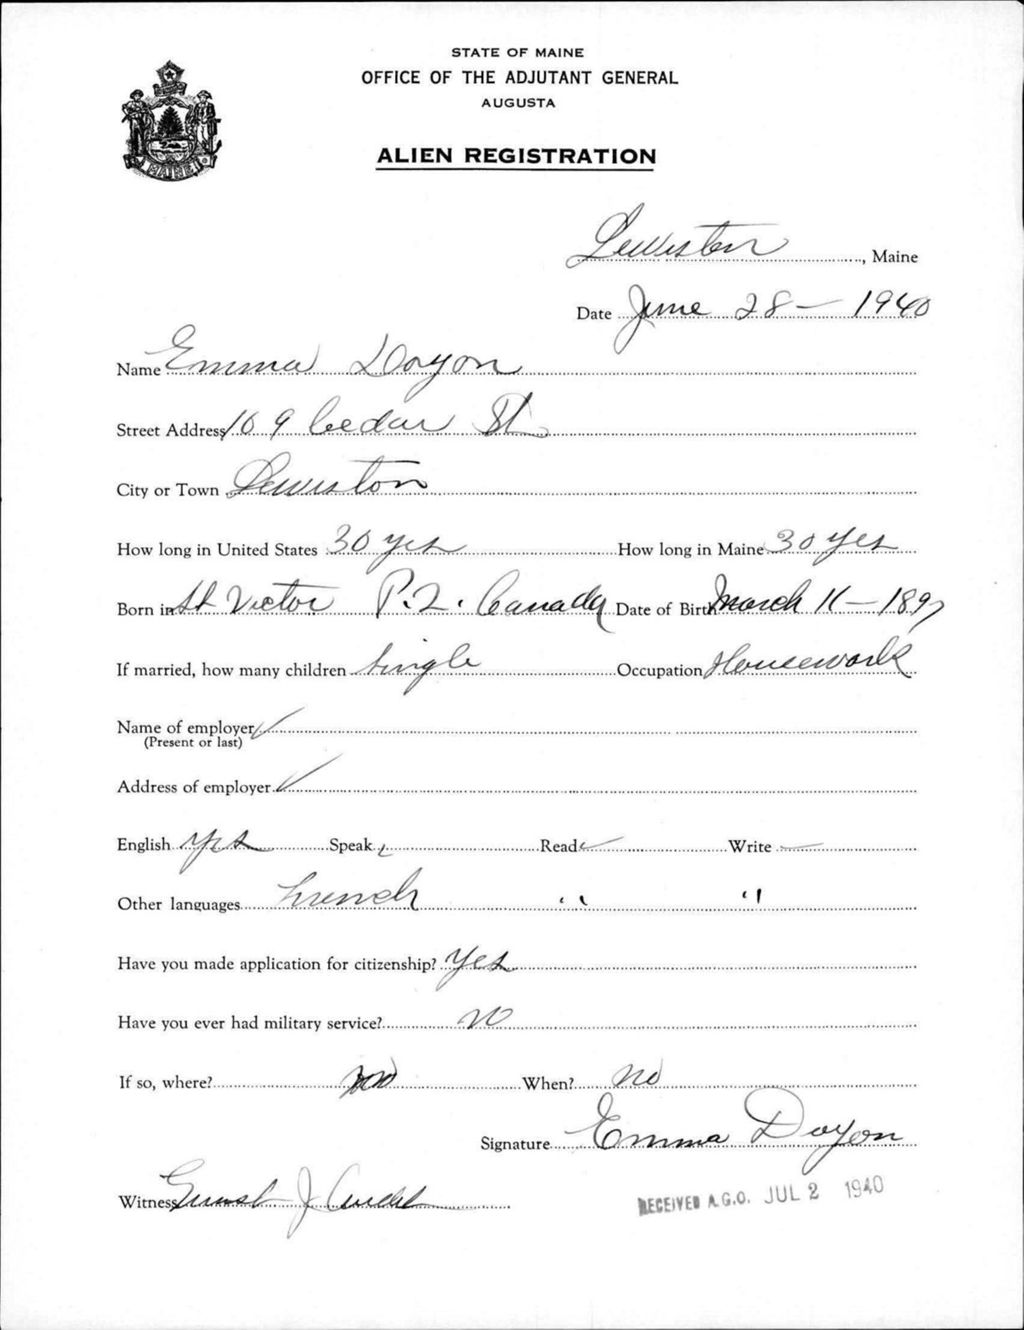 STATE OF MAINE
OFFICE OF THE ADJUTANT GENERAL
AUGUSTA
ALIEN REGISTRATION
MAINE
Lewiston, Maine
Date June 28 - 1940
Name Emma Doyon
Street Address 109 Cedar St
City or Town Lewiston
How long in United States 30 yrs How long in Maine 30 yrs
Born in St Victor P.Q. Canada Date of Birth March 11 - 1897
If married, how many children Single Occupation Housework
Name of employer ✓
(Present or last)
Address of employer ✓
English Yes Speak ✓ Read ✓ Write ✓
Other languages French " "
Have you made application for citizenship? Yes
Have you ever had military service? no
If so, where? When? no
Signature Emma Doyon
Witness Ernest J
RECEIVED A.G.O. JUL 2 1940